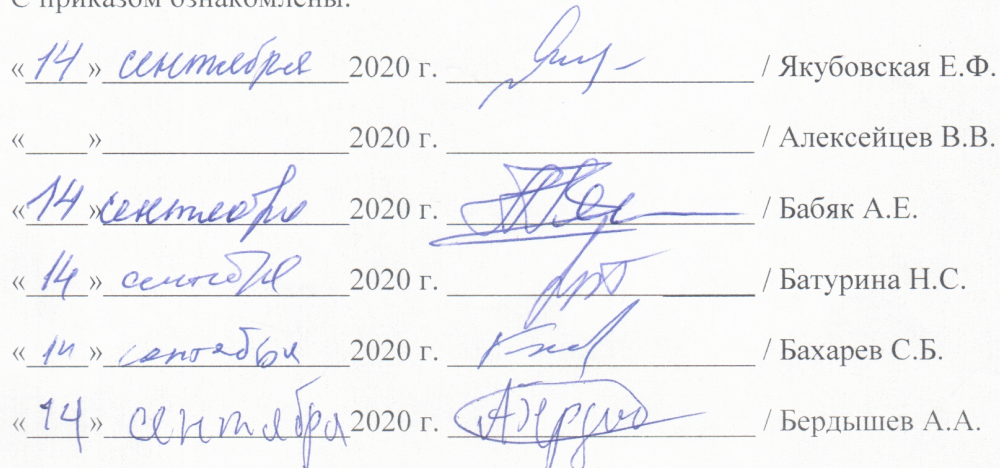 С приказом ознакомлены:
« 14 » сентября 2020 г. ____________ / Якубовская Е.Ф.
«____»____________2020 г. ____________ / Алексейцев В.В.
« 14 » сентября 2020 г. ____________ / Бабяк А.Е.
« 14 » сентября 2020 г. ____________ / Батурина Н.С.
« 14 » сентября 2020 г. ____________ / Бахарев С.Б.
« 14 » сентября 2020 г. ____________ / Бердышев А.А.